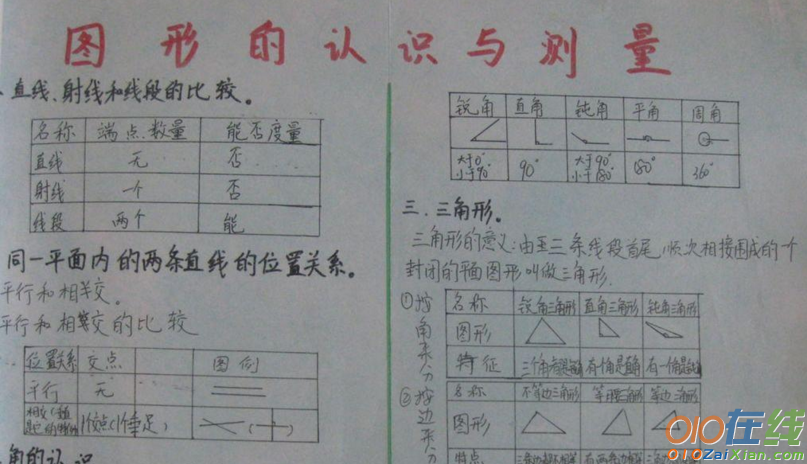 图形的认识与测量
直线、射线和线段的比较。
名称 端点数量 能否度量
直线 无 否
射线 一个 否
线段 两个 能
同一平面内的两条直线的位置关系。
平行和相交。
平行和相交的比较
位置关系 交点 图例
平行 无
1个交点(1个垂足)
角的认识
锐角 直角 钝角 平角 周角
大于0° 小于90° 90° 大于90° 小于180° 180° 360°
三.三角形。
三角形的意义:由三条线段首尾顺次相接围成的一个
封闭的平面图形叫做三角形.
①按角来分
名称 锐角三角形 直角三角形 钝角三角形
图形
特征 三个角都是锐角 有一个角是直角 有一个角是钝角
②按边来分
名称 不等边三角形 等腰三角形 等边三角形
图形
特点
010在线
010ZaiXian.Com